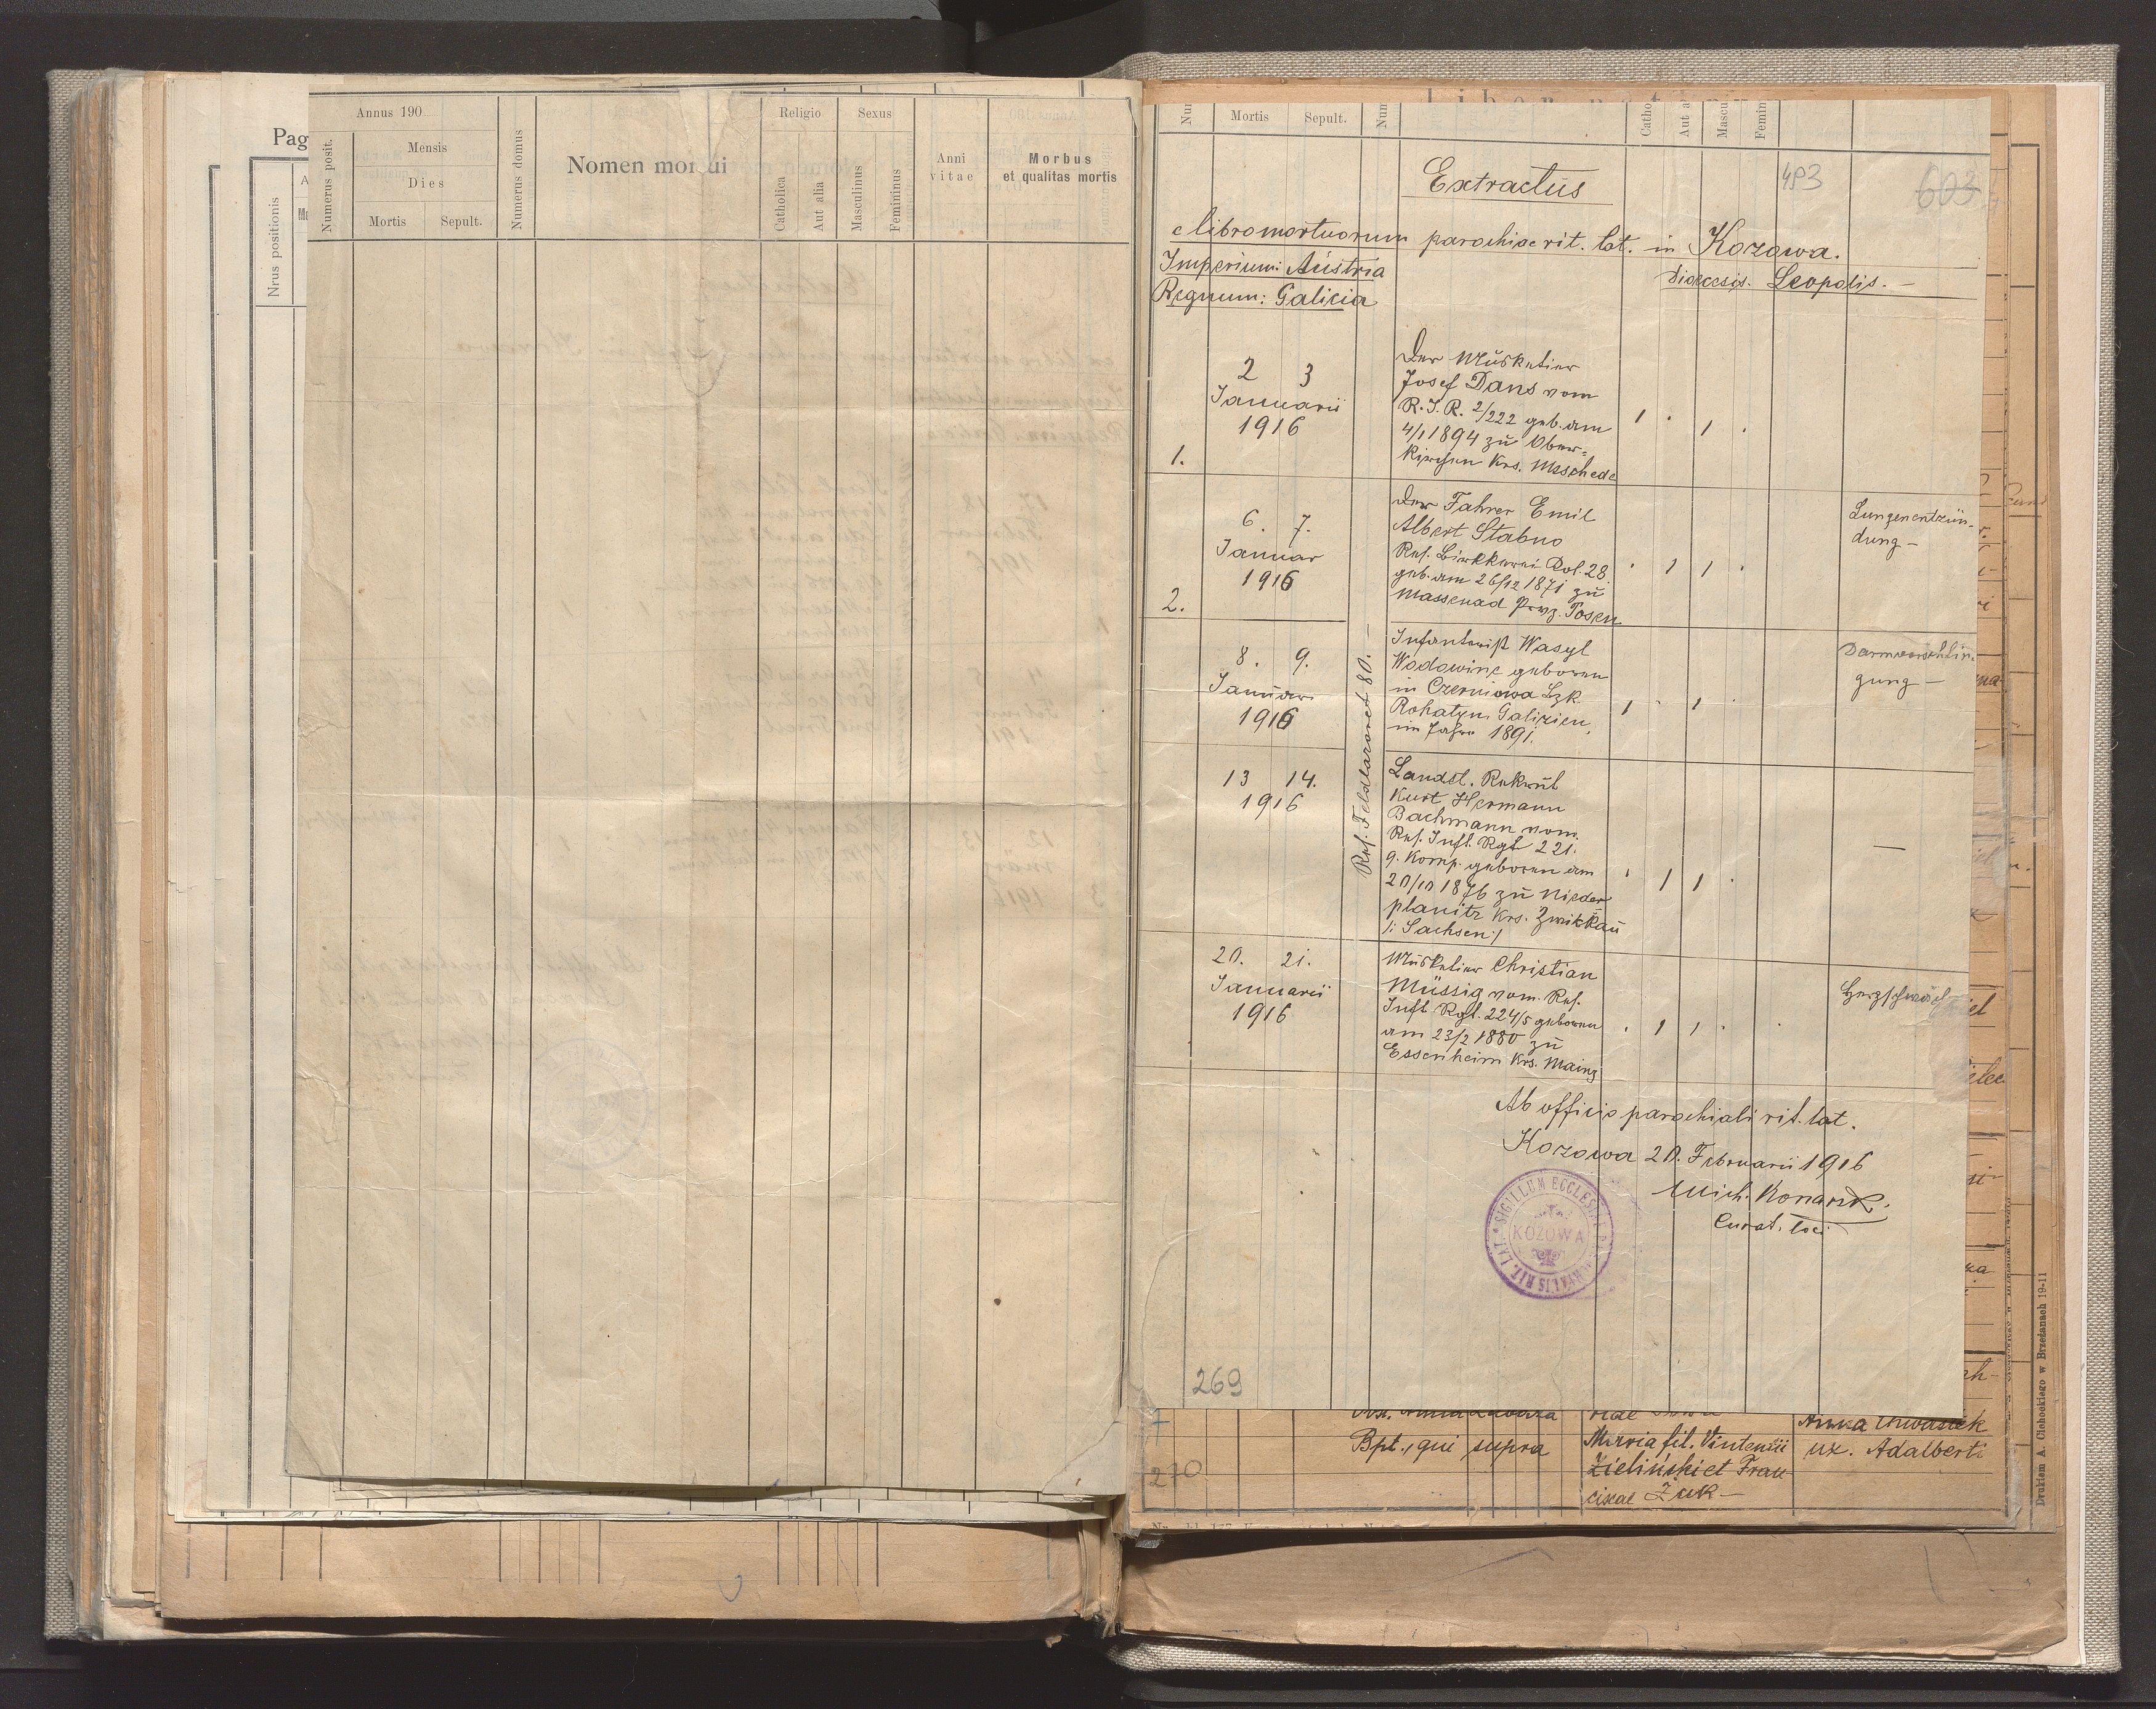 Pag
Nrus positionis
Annus 190
Numerus posit.
Mensis
Dies
Mortis
Sepult.
Numerus domus
Nomen mortui
Religio
Catholica
Aut alia
Sexus
Masculinus
Femininus
Anni
vitae
Morbus
et qualitas mortis
Mortis
Sepult.
Catho
Aut a
Mascu
Femin
Extractus
493
603
e libro mortuorum parochiae rit. lat. in Kozowa.
Imperium: Austria
Dioecesis. Leopolis. —
Regnum: Galicia
1.
2 3
Januarii
1916
Der Musketier
Josef Dans vom
R. J. R. 2/222 geb. am
4/1 1894 zu Ober-
kirchen Krs. Meschede
1 . 1 .
2.
6. 7.
Januar
1916
Der Fahrer Emil
Albert Stabno
Res. Bäckkerei Kol. 28.
geb. am 26/12 1871 zu
Massenad Prvz. Posen
. 1 1 .
Lungenentzün-
dung —
8. 9.
Januar
1916
Infanterist Wasyl
Wodowine geboren
in Czerniowa Bzk
Rohatyn Galizien,
im Jahre 1891.
1 . 1 .
Darmverschlin-
gung —
Res. Feldlazaret 80. —
13 14.
1916
Landst. Rekrut
Kurt Hermann
Bachmann vom
Res. Inft. Rgt 221.
9. Komp. geboren am
20/10 1876 zu Nieder
planitz Krs. Zwikkau
/: Sachsen :/
. 1 1 .
—
20. 21.
Januarii
1916
Musketier Christian
Müssig vom. Res.
Inft Rgt. 224/5 geboren
am 23/2 1880 zu
Essenheim Krs. Mainz
. 1 1 .
Herzschwäch
Ab officio parochiali rit. lat.
Kozowa 20. Februarii 1916
Mich. Konarsk.
Curat. loci
SIGILLUM ECCLESIAE PAROCHIALIS RIT. LAT.
KOZOWA
269
Anna Chwastek
Bpt., qui supra
Maria fil. Vintentii
ux. Adalberti
270
Zieliński et Fran
ciscae Żuk —
Drukiem A. Cichockiego w Brzeżanach 19-11